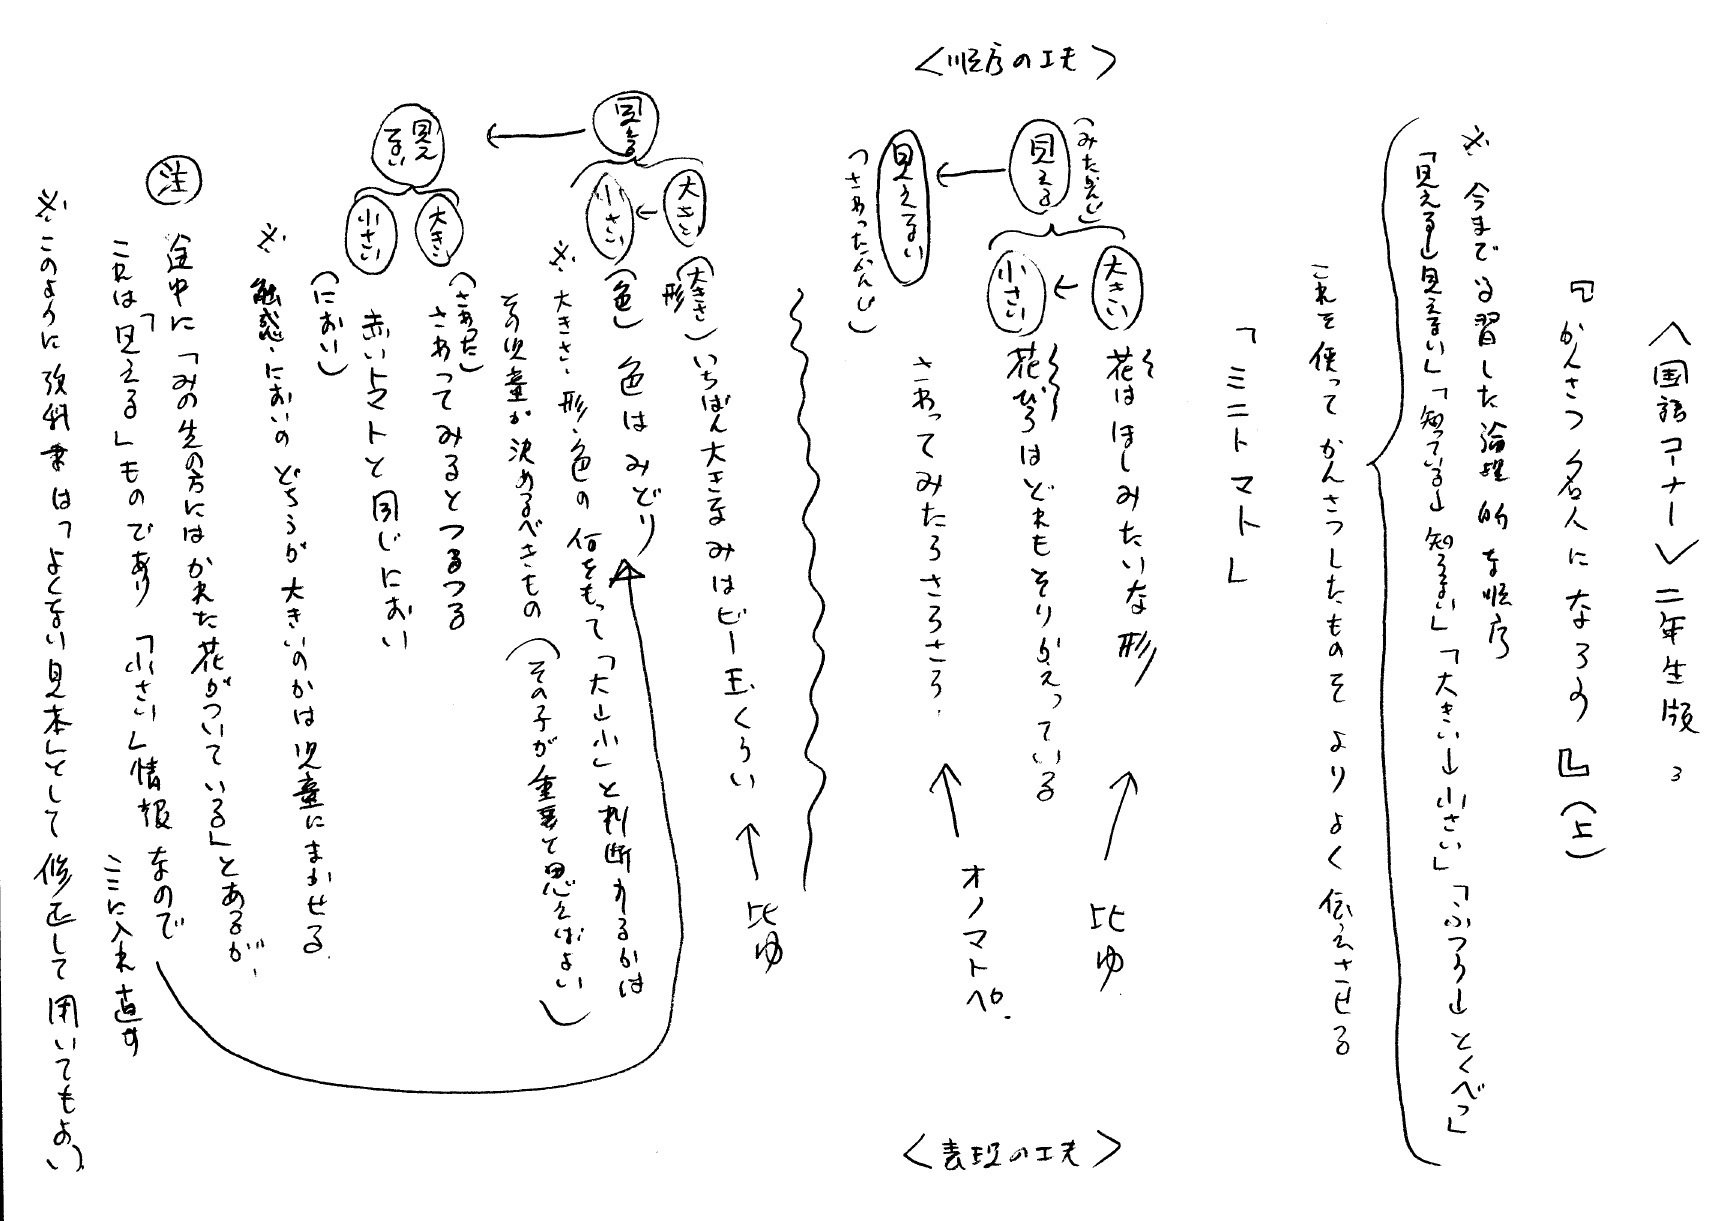 〈国語コーナー〉二年生版 3
『かんさつ名人になろう』(上)
※今まで習した論理的な順序
「見える→見えない」「知っている→知らない」「大きい→小さい」「ふつう→とくべつ」
これを使ってかんさつしたものをよりよく伝えさせる
「ミニトマト」
〈順序の工夫〉
〈表現の工夫〉
(みたかんじ)
見える
大きい
花はほしみたいな形
比ゆ
小さい
花びらはどれもそりかえっている
見えない
(さわったかんじ)
さわってみたらさらさら.
オノマトペ.
見える
大きい
(大きさ 形)
いちばん大きなみはビー玉くらい
比ゆ
小さい
(色)
色はみどり
※大きさ・形・色の何をもって「大→小」と判断するかは
その児童が決めるべきもの(その子が重要と思えばよい)
見えない
大きい
(さわった)
さわってみるとつるつる
小さい
(におい)
赤いトマトと同じにおい
※触感・においのどちらが大きいのかは児童にまかせる.
注
途中に「みの先の方にはかれた花がついている」とあるが、
これは「見える」ものであり「小さい」情報なので
ここに入れ直す
※このように教科書は「よくない見本」として修正して用いてもよい.